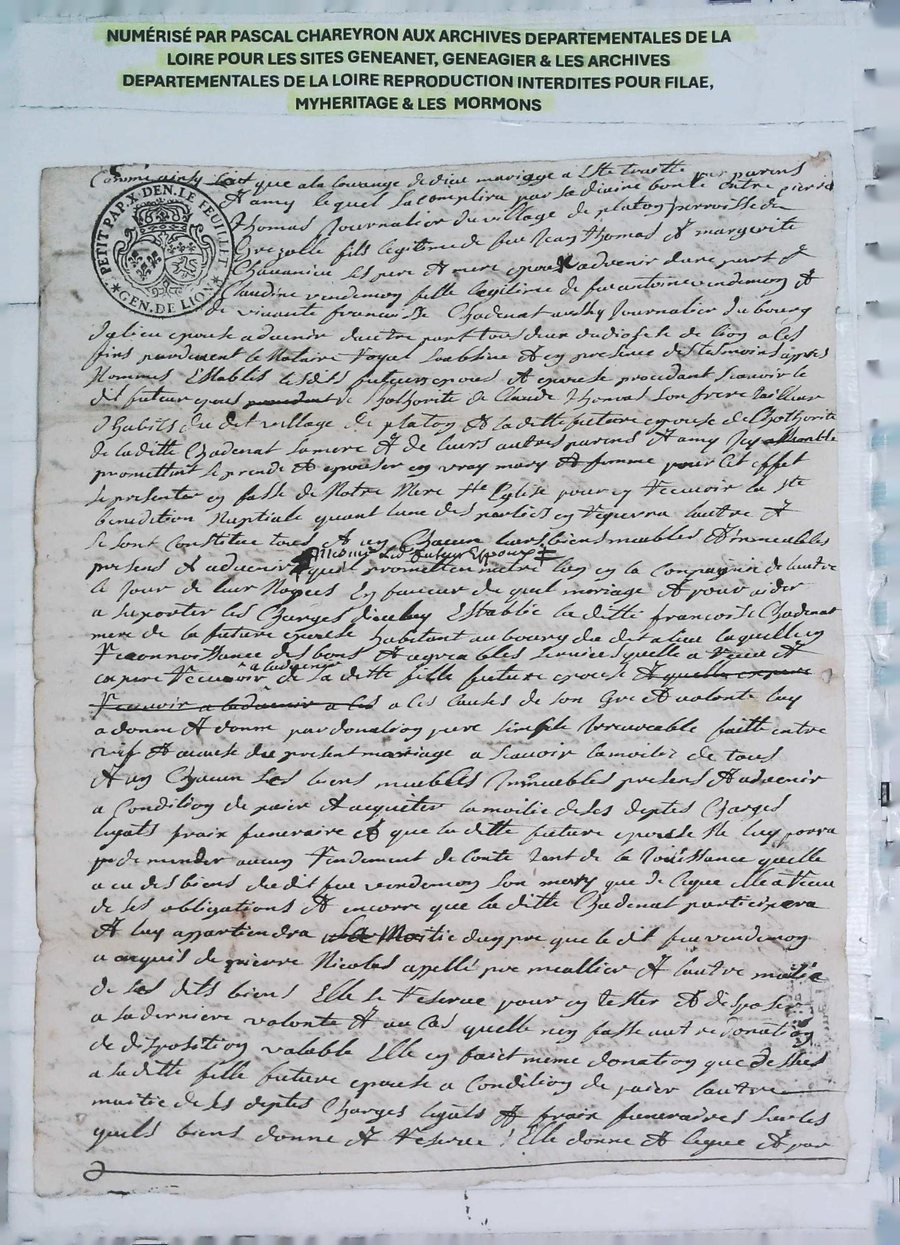 NUMÉRISÉ PAR PASCAL CHAREYRON AUX ARCHIVES DEPARTEMENTALES DE LA
LOIRE POUR LES SITES GENEANET, GENEAGIER & LES ARCHIVES
DEPARTEMENTALES DE LA LOIRE REPRODUCTION INTERDITES POUR FILAE,
MYHERITAGE & LES MORMONS
PETIT PAP. X. DEN. LE FEUILLET
GEN. DE LION
Comme ainsy soit que a la louange de dieu mariage a este traitté par parens
& amy lequel sacomplira par sa divine bonté entre pierre
thomas Journalier du village de platon perroisse de
Grezolle fils legitime de feu Jean thomas & margerite
ses pere & mere epoux advenir dune part &
Claudine vendemon fille legitime de feu antoine vendemon &
de vivante francoise Chadenat Journalier du bourg
epouse advenir dautre part tous deux du diosese de lion a ces
fins pardevant le Notaire Royal & en presence des tesmoins apres
Nommes Establis lesdits futeurs epoux & epouse procedant scavoir le
dit futeur epoux de lhothorité de Claude thomas son frere tailleur
dhabits du dit village de platon & la ditte future epouse de lhothorité
de la ditte Chadenat sa mere & de leurs autres parens & amy
promettent se prendre & epouser en vray mary & femme pour cet effet
se presenter en fasse de Notre Mere Ste Eglise pour en recevoir la Ste
benediction Nuptiale quant lune des parties en requerra lautre &
se sont Constitue tous & un Chacun leurs biens meubles & inmeubles
presens & advenir quil promettent
le Jour de leur Nopces En faveur du quel mariage & pour aider
a suporter les Charges dicelluy Establie la ditte francoise Chadenat
mere de la future epouse habitant au bourg du dit laquelle en
reconnoissance des bons & agreables services quelle a receu &
espere recevoir a ladvenir de sa ditte fille future epouse
a ces causes de son Gre & volonte luy
a donne & donne par donation pure simple irrevocable faitte entre
vif & a cause du present mariage a scavoir la moitié de tous
& un Chacun ses biens meubles Immeubles presens & advenir
a Condition de paier & acquiter la moitié de ses deptes Charges
legats fraix funeraire & que la ditte future epouse Ne luy porra
demander aucun rendement de Conte tant de la Jouissance quelle
a eu des biens du dit feu vendemon son mary que de ce que elle a receu
de ses obligations & encorre que la ditte Chadenat participera
& luy appartiendra la Moitié du pre que le dit feu vendemon
a acquis de pierre Nicolas apellé pre meallier & lautre moitié
de ses dits biens Elle se reserve pour en tester & disposer
a sa derniere volonte & au cas quelle nen fasse autre donation
de disposition valable Elle en faict meme donation que dessus
a sa ditte fille future epouse a Condition de paier lautre
moitié de ses deptes Charges legats & fraix funeraires sur les
quels biens donne & reserve Elle donne & legue & par